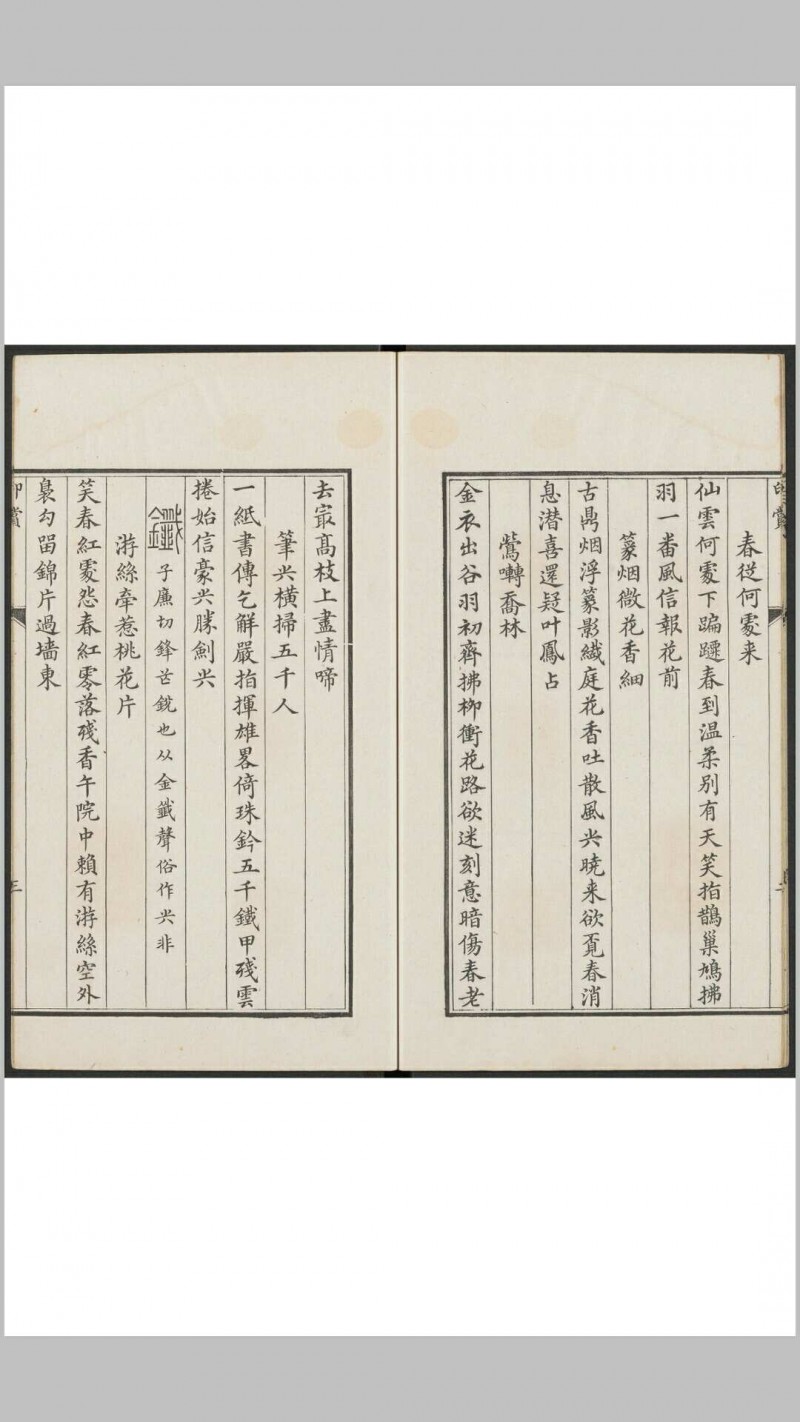 春從何處来
仙雲何處下蹁躚春到温柔别有天笑拍鵲巢鳩拂
羽一番風信報花前
篆烟微花香細
古鼎烟浮篆影纖庭花香吐散風尖曉来欲覔春消
息潛喜還疑叶鳳占
鶯囀喬林
金衣出谷羽初齊拂柳衝花路欲迷刻意暗傷春老
去冣髙枝上盡情啼
筆尖橫掃五千人
一紙書傳乞解嚴拍揮雄畧倚珠鈐五千鐵甲殘雲
捲始信豪尖勝劍尖
鐵 子廉切鋒芒銳也从金韱聲俗作尖非
游絲牽惹桃花片
笑春紅處怨春紅零落殘香午院中賴有游絲空外
裊勾畱錦片過墻東
三